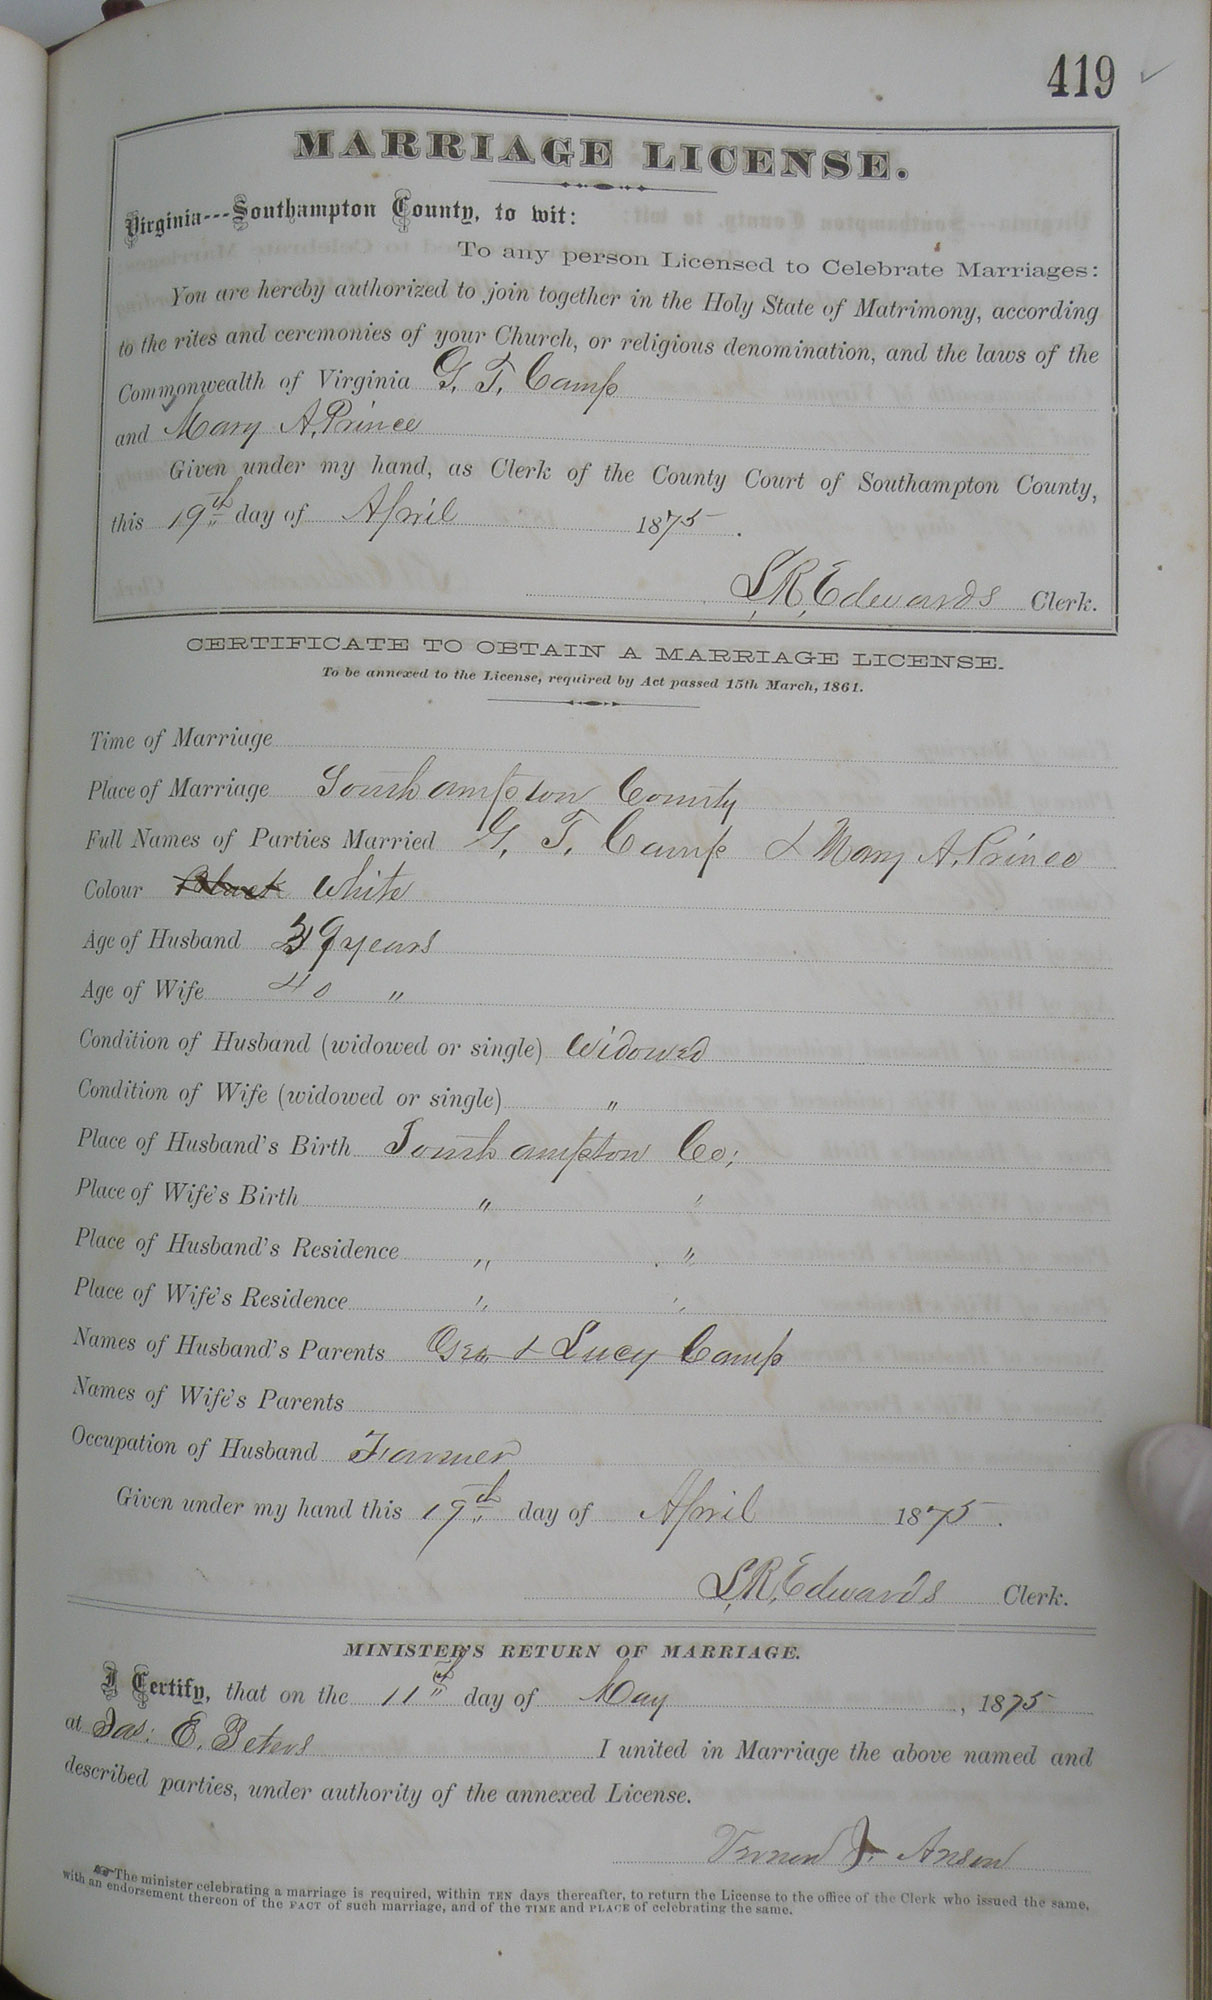 419
MARRIAGE LICENSE.
Virginia---Southampton County, to wit:
To any person Licensed to Celebrate Marriages:
You are hereby authorized to join together in the Holy State of Matrimony, according
to the rites and ceremonies of your Church, or religious denomination, and the laws of the
Commonwealth of Virginia G. T. Camp
and Mary A. Prince
Given under my hand, as Clerk of the County Court of Southampton County,
this 19th day of April 1875.
L. R. Edwards Clerk.
CERTIFICATE TO OBTAIN A MARRIAGE LICENSE.
To be annexed to the License, required by Act passed 15th March, 1861.
Time of Marriage
Place of Marriage Southampton County
Full Names of Parties Married G. T. Camp & Mary A. Prince
Colour Black White
Age of Husband 39 years
Age of Wife 40 "
Condition of Husband (widowed or single) Widowed
Condition of Wife (widowed or single) "
Place of Husband's Birth Southampton Co;
Place of Wife's Birth " "
Place of Husband's Residence " "
Place of Wife's Residence " "
Names of Husband's Parents Geo. & Lucy Camp
Names of Wife's Parents
Occupation of Husband Farmer
Given under my hand this 19th day of April 1875.
L. R. Edwards Clerk.
MINISTER'S RETURN OF MARRIAGE.
I Certify, that on the 11th day of May, 1875
at Jas. E. Peters I united in Marriage the above named and
described parties, under authority of the annexed License.
J.
The minister celebrating a marriage is required, within TEN days thereafter, to return the License to the office of the Clerk who issued the same,
with an endorsement thereon of the FACT of such marriage, and of the TIME and PLACE of celebrating the same.